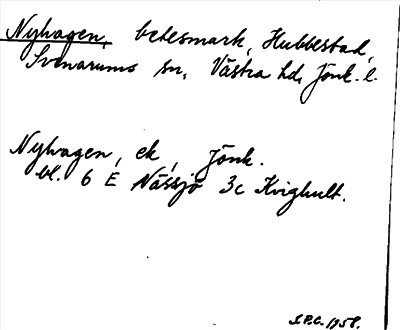 Nyhagen, betesmark, Hubbestad,
Svenarums sn, Västra hd, Jönk. l.
Nyhagen, ek, Jönk.
bl. 6 E Nässjö 3c Kvighult.
S.P.C. 1958.